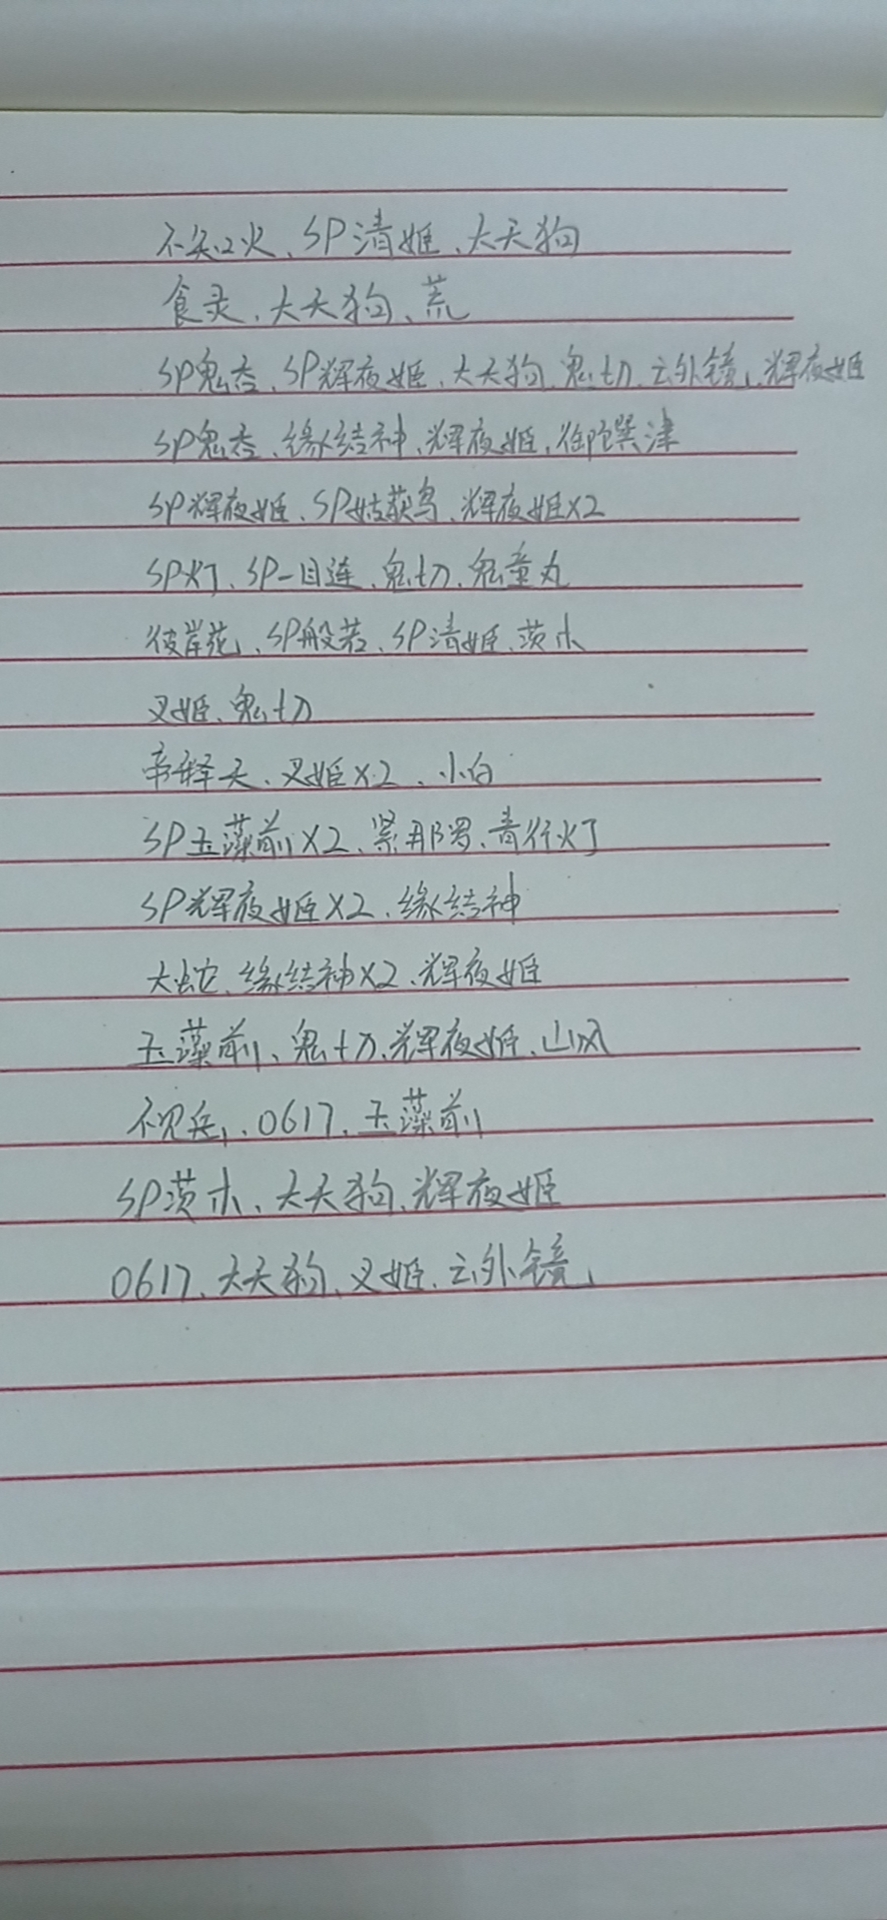 不知火、SP清姬、大天狗
食灵、大天狗、荒
SP鬼吞、SP辉夜姬、大天狗、鬼切、云外镜、辉夜姬
SP鬼吞、缘结神、辉夜姬、御馔津
SP辉夜姬、SP姑获鸟、辉夜姬X2
SP灯、SP一目连、鬼切、鬼童丸
彼岸花、SP般若、SP清姬、茨木
叉姬、鬼切
帝释天、叉姬X2、小白
SP玉藻前X2、紧那罗、青行灯
SP辉夜姬X2、缘结神
大蛇、缘结神X2、辉夜姬
玉藻前、鬼切、辉夜姬、山风
不见岳、0617、玉藻前
SP茨木、大天狗、辉夜姬
0617、大天狗、叉姬、云外镜